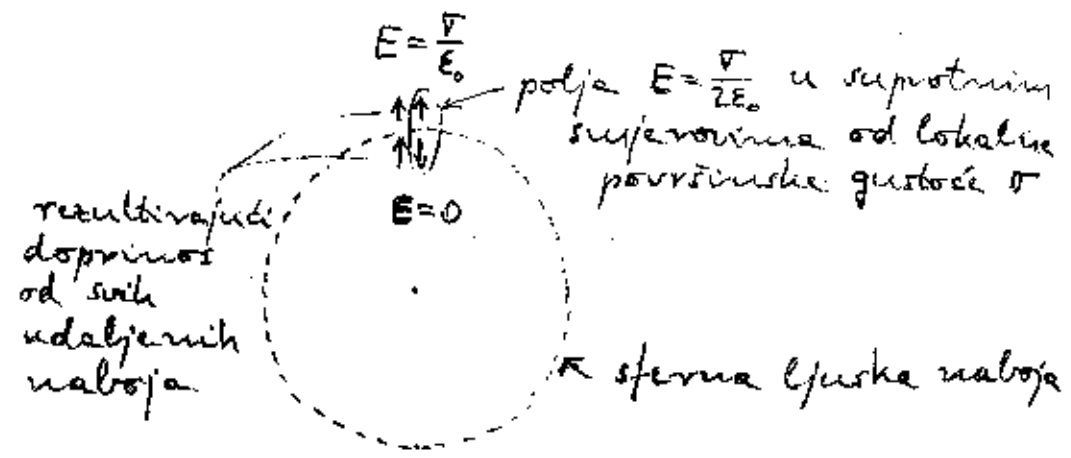 E = σ/ε₀
polja E = σ/2ε₀ u suprotnim
smjerovima od lokalne
površinske gustoće σ
E = 0
rezultirajući
doprinos
od svih
udaljenih
naboja
sferna ljuska naboja